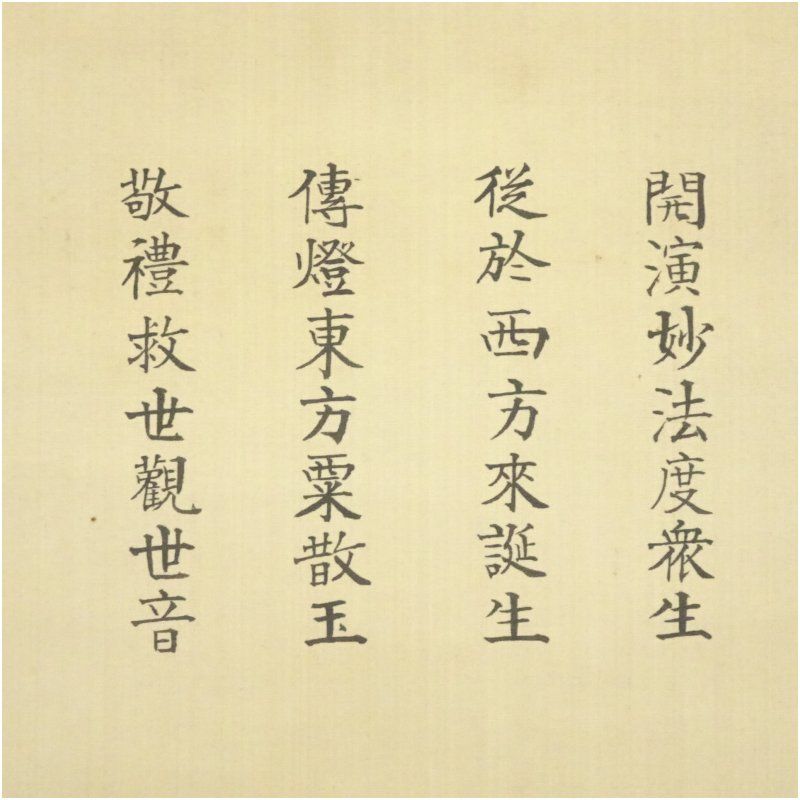 開演妙法度衆生
従於西方來誕生
傳燈東方粟散玉
敬禮救世觀世音